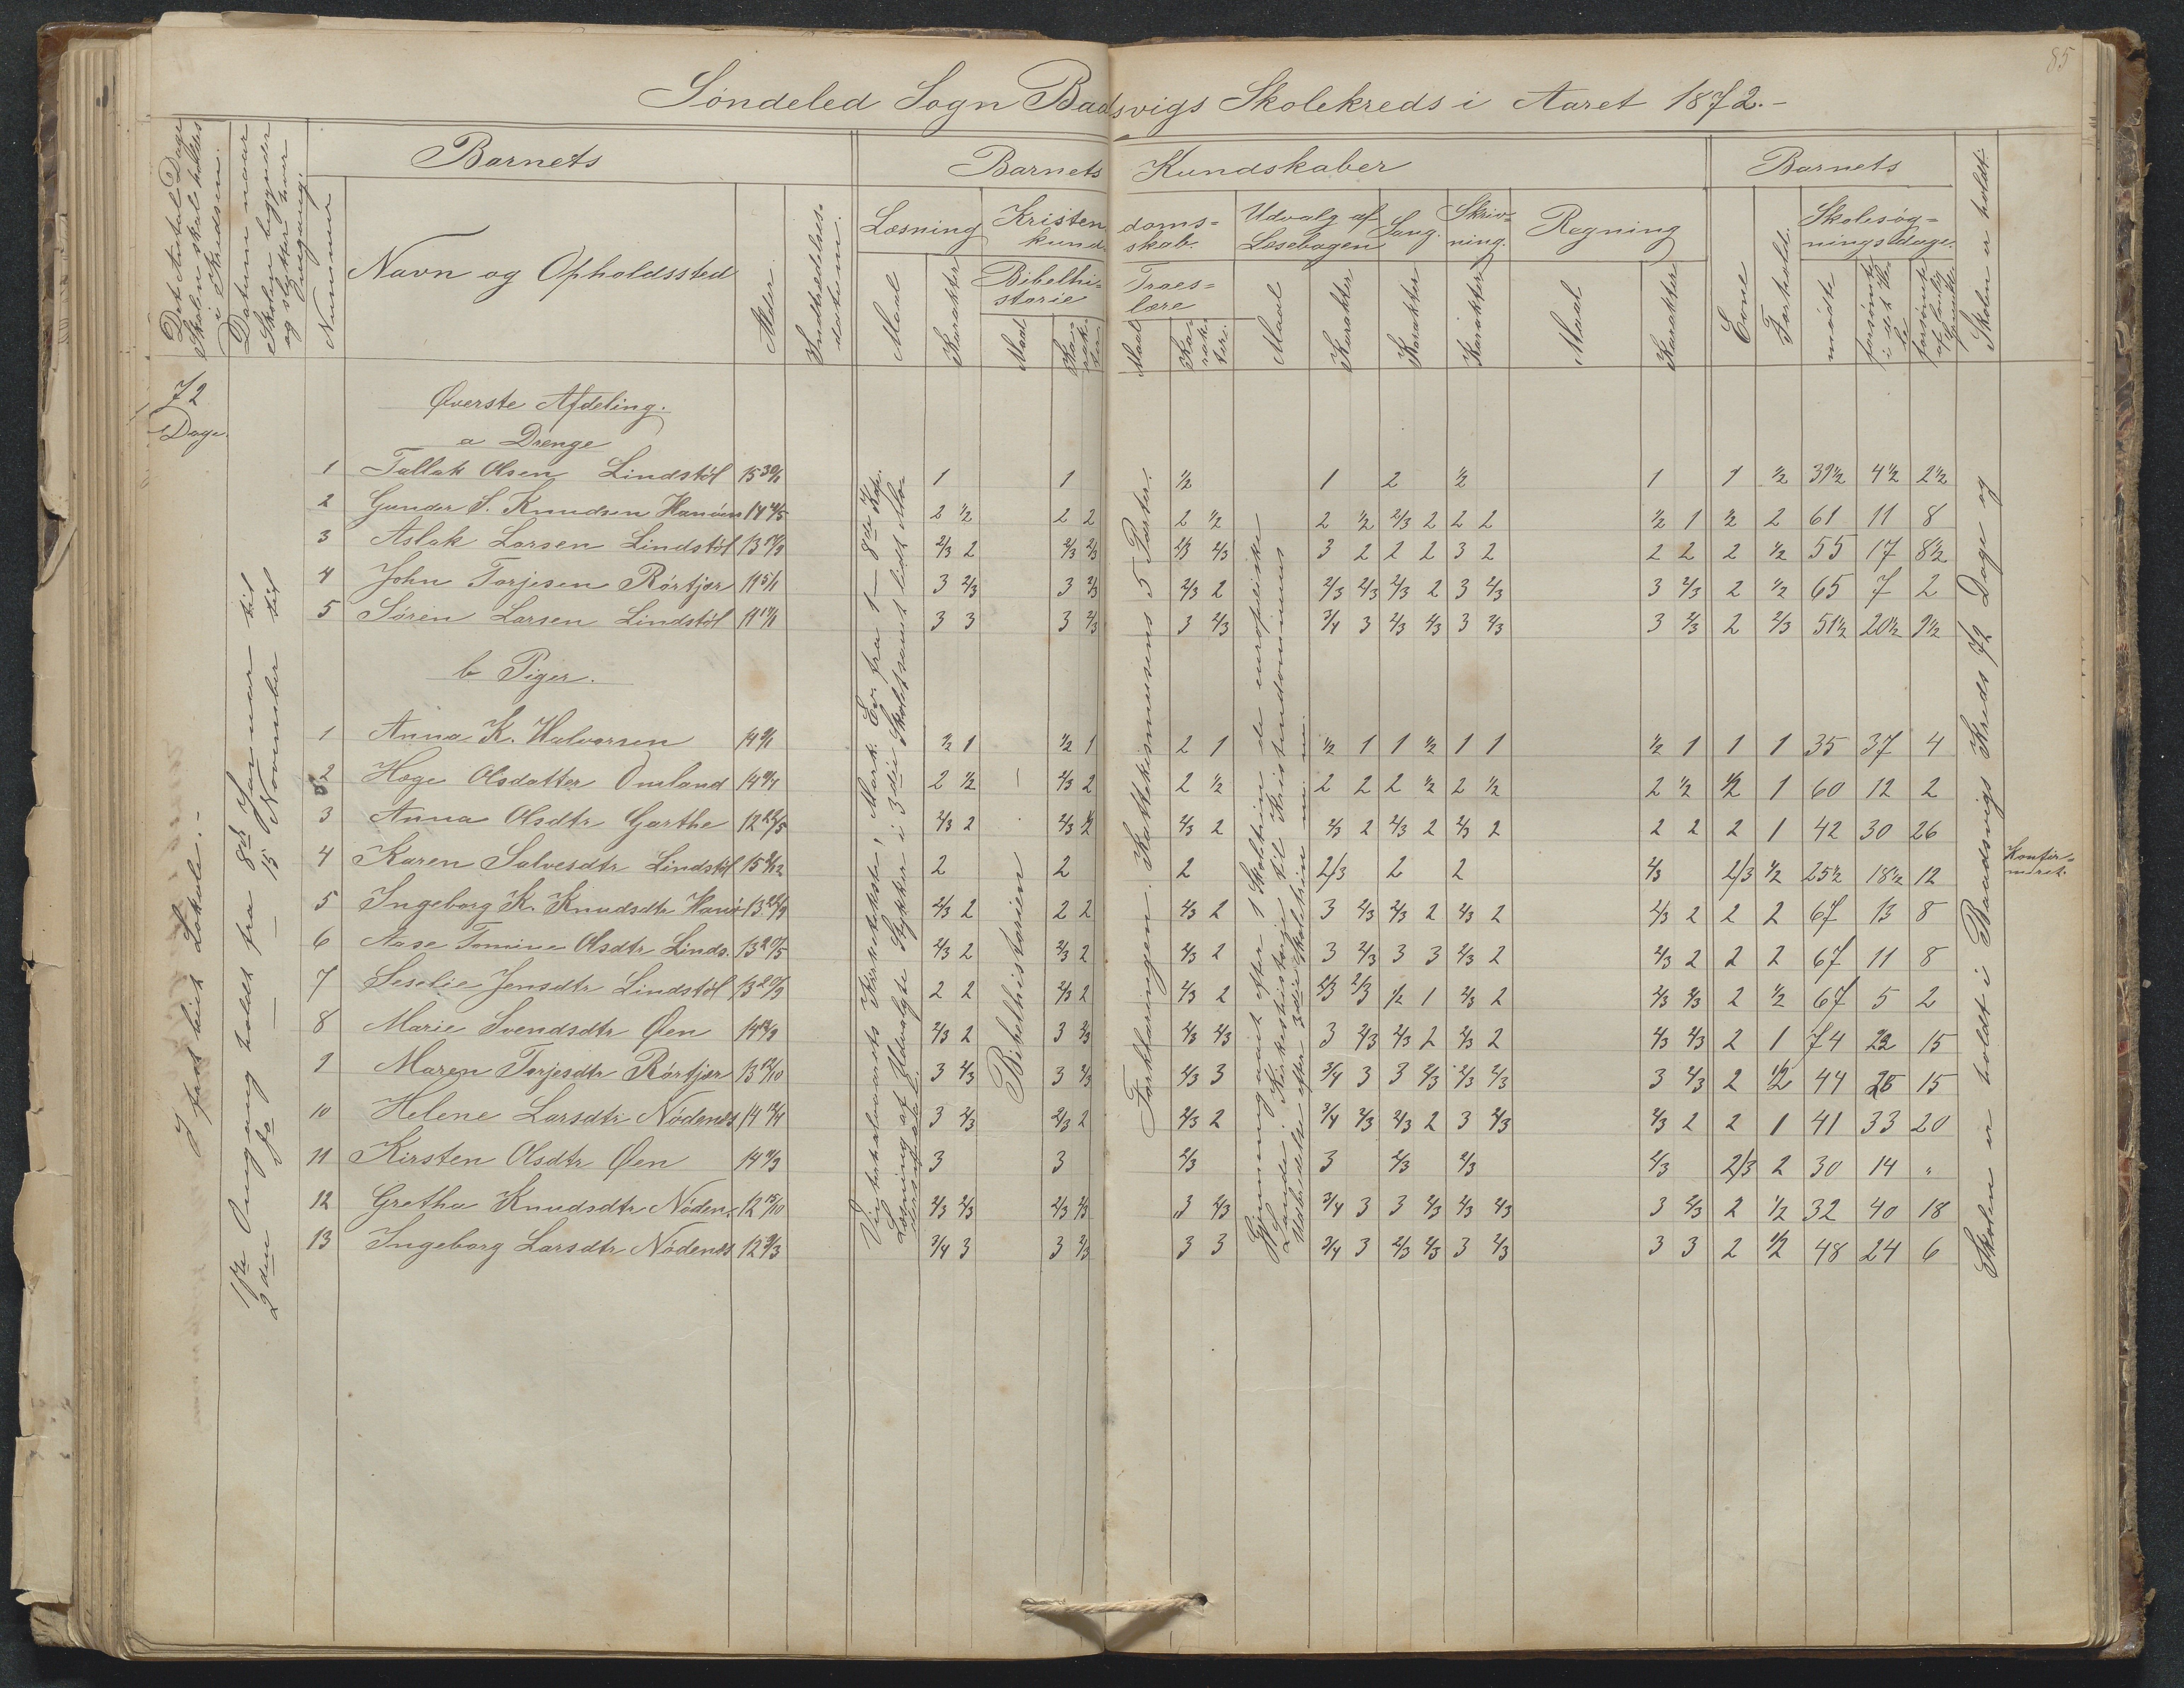 85
Søndeled Sogn Baadsvigs Skolekreds i Aaret 1872.-
Det Antal Dage Skolen skal holdes i Kredsen.
Datum naar Skolen begynder og slutter hver Omgang.
Nummer
Barnets
Navn og Opholdssted
Alder.
Indtrædelses-datum.
Barnets Kundskaber
Læsning
Maal
Karakter
Kristendoms=kundskab.
Bibelhi=storie
Maal
Karakter
Troes=lære
Maal
Karakter.
Udvalg af Læsebogen
Maal
Karakter
Sang.
Karakter
Skriv=ning.
Karakter
Regning
Maal
Karakter
Barnets
Evne
Forhold.
Skolesøg=ningsdage.
mødte
forsømte i det Hele
forsømte af lovlig Grund
Skolen er holdt:
72 Dage.
I fast leiet Lokale.-
1ste Omgang holdt fra 8de Januar til
2den do — — 15 November til
Øverste Afdeling.
a Drenge
1 Tallak Olsen Lindstøl 15 30/1 1 1 1/2 1 2 1/2 1 1 1/2 39 1/2 4 1/2 2 1/2
2 Gunder S. Knudsen Hanøen 14 2 1/2 2 2 2 1/2 2 1/2 2/3 2 2 2 1/2 1 1/2 2 61 11 8
3 Aslak Larsen Lindstøl 13 2/3 2 2/3 2/3 2/3 2/3 3 2 2 2 3 2 2 2 2 1/2 55 17 8 1/2
4 John Torjesen Rørkjær 11 5/1 3 2/3 3 2/3 2/3 2 2/3 2/3 2/3 2 3 2/3 3 2/3 2 1/2 65 7 2
5 Søren Larsen Lindstøl 11 3 3 3 2/3 3 2/3 3/4 3 2/3 2/3 3 2/3 3 2/3 2 2/3 51 1/2 20 1/2 9 1/2
b Piger.
1 Anna K. Halvorsen 14 1/2 1 1/2 1 2 1 1/2 1 1 1/2 1 1 1/2 1 1 1 35 37 4
2 Hæge Olsdatter Omland 14 2 1/2 — 2/3 2 2 1/2 2 2 2 1/2 2 1/2 2 1/2 1/2 1 60 12 2
3 Anna Olsdtr Garthe 12 22/5 2/3 2 2/3 1/2 2/3 2 2/3 2 2/3 2 2/3 2 2 2 2 1 42 30 26
4 Karen Salvesdtr Lindstøl 15 2 2 2 2/3 2 2 2/3 2/3 1/2 25 1/2 18 1/2 12 Konfir=meret.
5 Ingeborg K. Knudsdtr Hanø 13 2/3 2 2 2 2/3 2 3 2/3 2/3 2 2/3 2 2/3 2 2 2 67 13 8
6 Aase Tomine Olsdtr Linds. 13 2/3 2 2/3 2 2/3 2 3 2/3 3 3 2/3 2 2/3 2 2 2 67 11 8
7 Seselie Jensdtr Lindstøl 13 2 2 2/3 2 2/3 2 2/3 2/3 1/2 1 2/3 2 2/3 2/3 2 1/2 67 5 2
8 Marie Svendsdtr Øen 14 2/3 2 3 2/3 2/3 2/3 3 2/3 2/3 2 2/3 2 2/3 2/3 2 1 74 22 15
9 Maren Torjesdtr Rørkjær 13 3 2/3 3 2/3 2/3 3 3/4 3 3 2/3 2/3 2/3 3 2/3 2 1/2 44 26 15
10 Helene Larsdtr Nødenes 14 3 2/3 2/3 2 2/3 2 3/4 2/3 2/3 2 3 2/3 2/3 2 2 1 41 33 20
11 Kirsten Olsdtr Øen 14 3 3 2/3 3 2/3 2/3 2/3 2/3 2 30 14 "
12 Grethe Knudsdtr Nøden. 12 2/3 2/3 2/3 2/3 3 2/3 3/4 3 3 2/3 2/3 2/3 3 2/3 2 1/2 32 40 18
13 Ingeborg Larsdtr Nødenes 12 3/4 3 3 2/3 3 3 3/4 3 2/3 2/3 3 2/3 3 3 2 1/2 48 24 6
Vinterhalvaarets Kirketekster, Mark. Ev. fra 1 — 8de Kap.
Læsning af Udvalgte Stykker i 3die Skoletrin samt lidt
Bibelhistorien
Forklaringen. Kattekismusens 5 Parter.
Gjennemgaaet efter 1 Skoletrin de europæiske
Lande. Kirkehistorie til Kristendommens
Udbredelse efter 3die Skoletrin m. m.
Skolen er holdt i Baadsvigs Kreds 72 Dage og